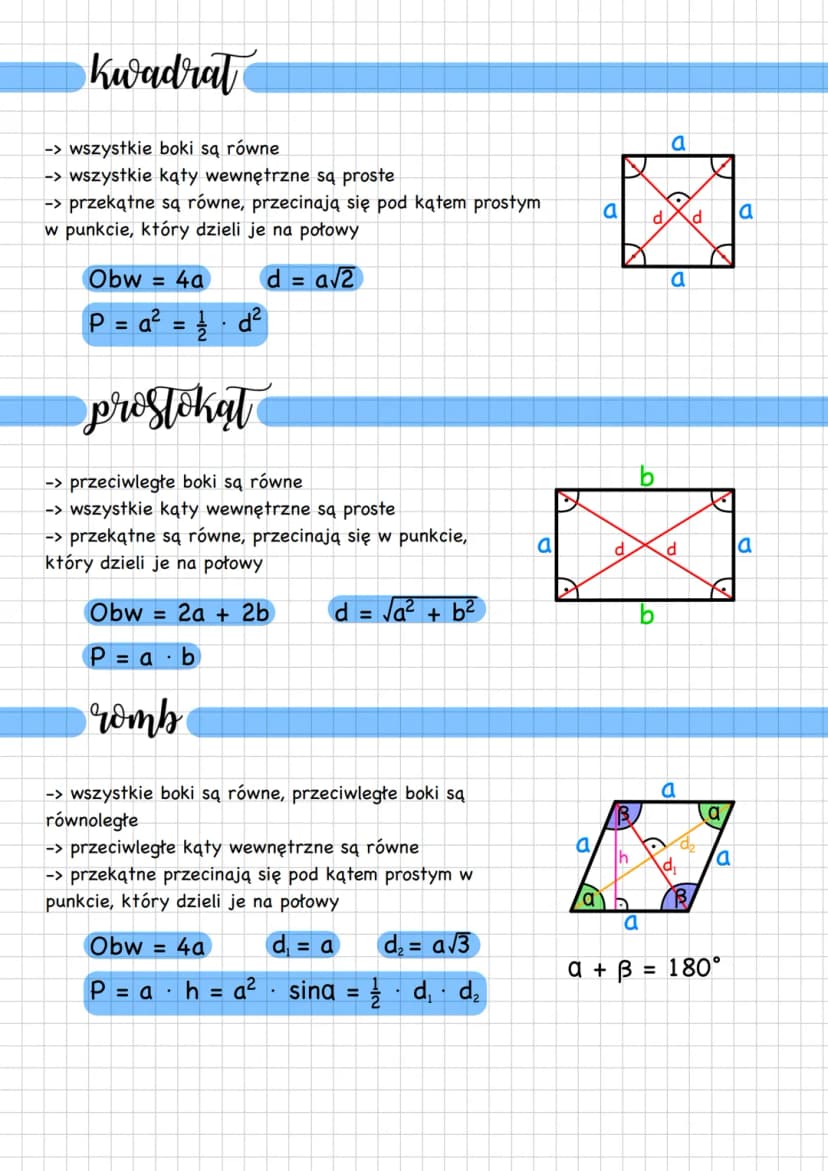 kwadrat
-> wszystkie boki są równe
-> wszystkie kąty wewnętrzne są proste
-> przekątne są równe, przecinają się pod kątem prostym
w punkcie, który dzieli je na połowy
Obw = 4a
d = a√2
P = a² = ½ · d²
a
a
d
d
a
a
prostokąt
-> przeciwległe boki są równe
-> wszystkie kąty wewnętrzne są proste
-> przekątne są równe, przecinają się w punkcie,
który dzieli je na połowy
Obw = 2a + 2b
d = √a² + b²
P = a · b
b
a
d
d
a
b
romb
-> wszystkie boki są równe, przeciwległe boki są
równoległe
-> przeciwległe kąty wewnętrzne są równe
-> przekątne przecinają się pod kątem prostym w
punkcie, który dzieli je na połowy
Obw = 4a
d₁ = a
d₂ = a√3
P = a · h = a² · sinα = ½ · d₁ · d₂
a
β
α
a
h
d₂
d₁
a
α
β
a
α + β = 180°